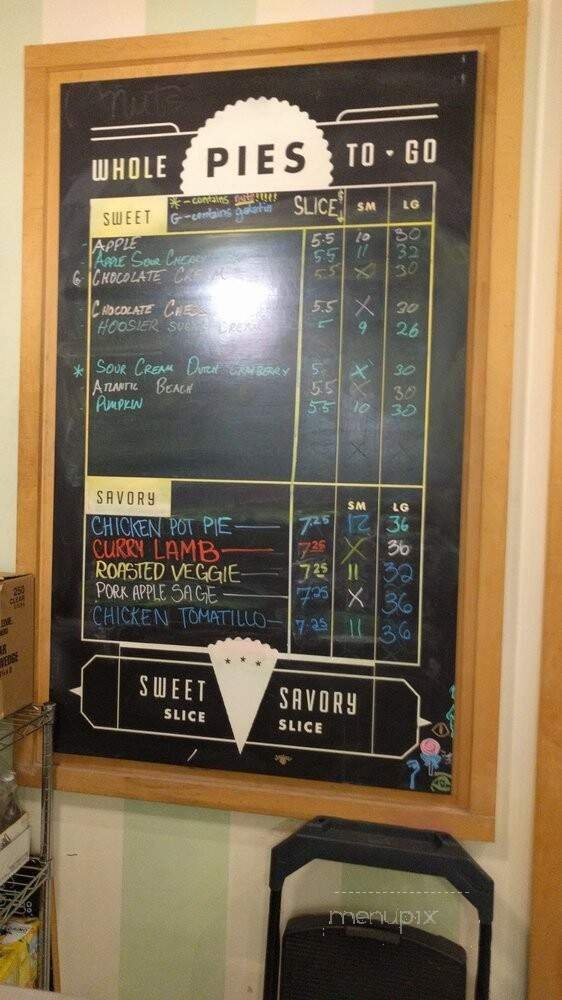 Nuts
WHOLE PIES TO - GO
SWEET * - contains nuts!!!!! SLICE $ SM LG
G - contains gelatin
- APPLE 5.5 10 30
- APPLE SOUR CHERRY 5.5 11 32
G CHOCOLATE CREAM 5.5 X 30
CHOCOLATE CHESS 5.5 X 30
- HOOSIER SUGAR CREAM 5 9 26
* SOUR CREAM DUTCH CRANBERRY 5 X 30
ATLANTIC BEACH 5.5 X 30
PUMPKIN 5.5 10 30
X X
SAVORY SM LG
CHICKEN POT PIE 7.25 12 36
CURRY LAMB 7.25 X 36
ROASTED VEGGIE 7.25 11 32
PORK APPLE SAGE 7.25 X 36
CHICKEN TOMATILLO 7.25 11 36
SWEET SLICE
SAVORY SLICE
250
CLEAR
menupix